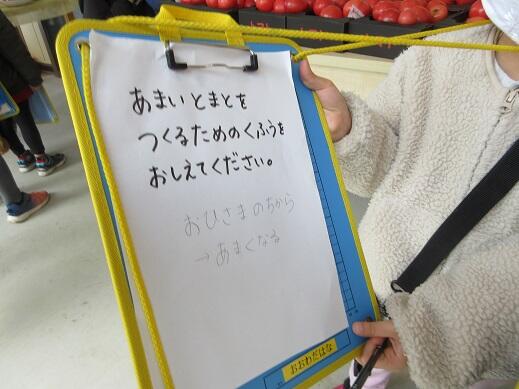 あまいとまとを
つくるためのくふうを
おしえてください。
おひさまのちから
→あまくなる
おおわだはな